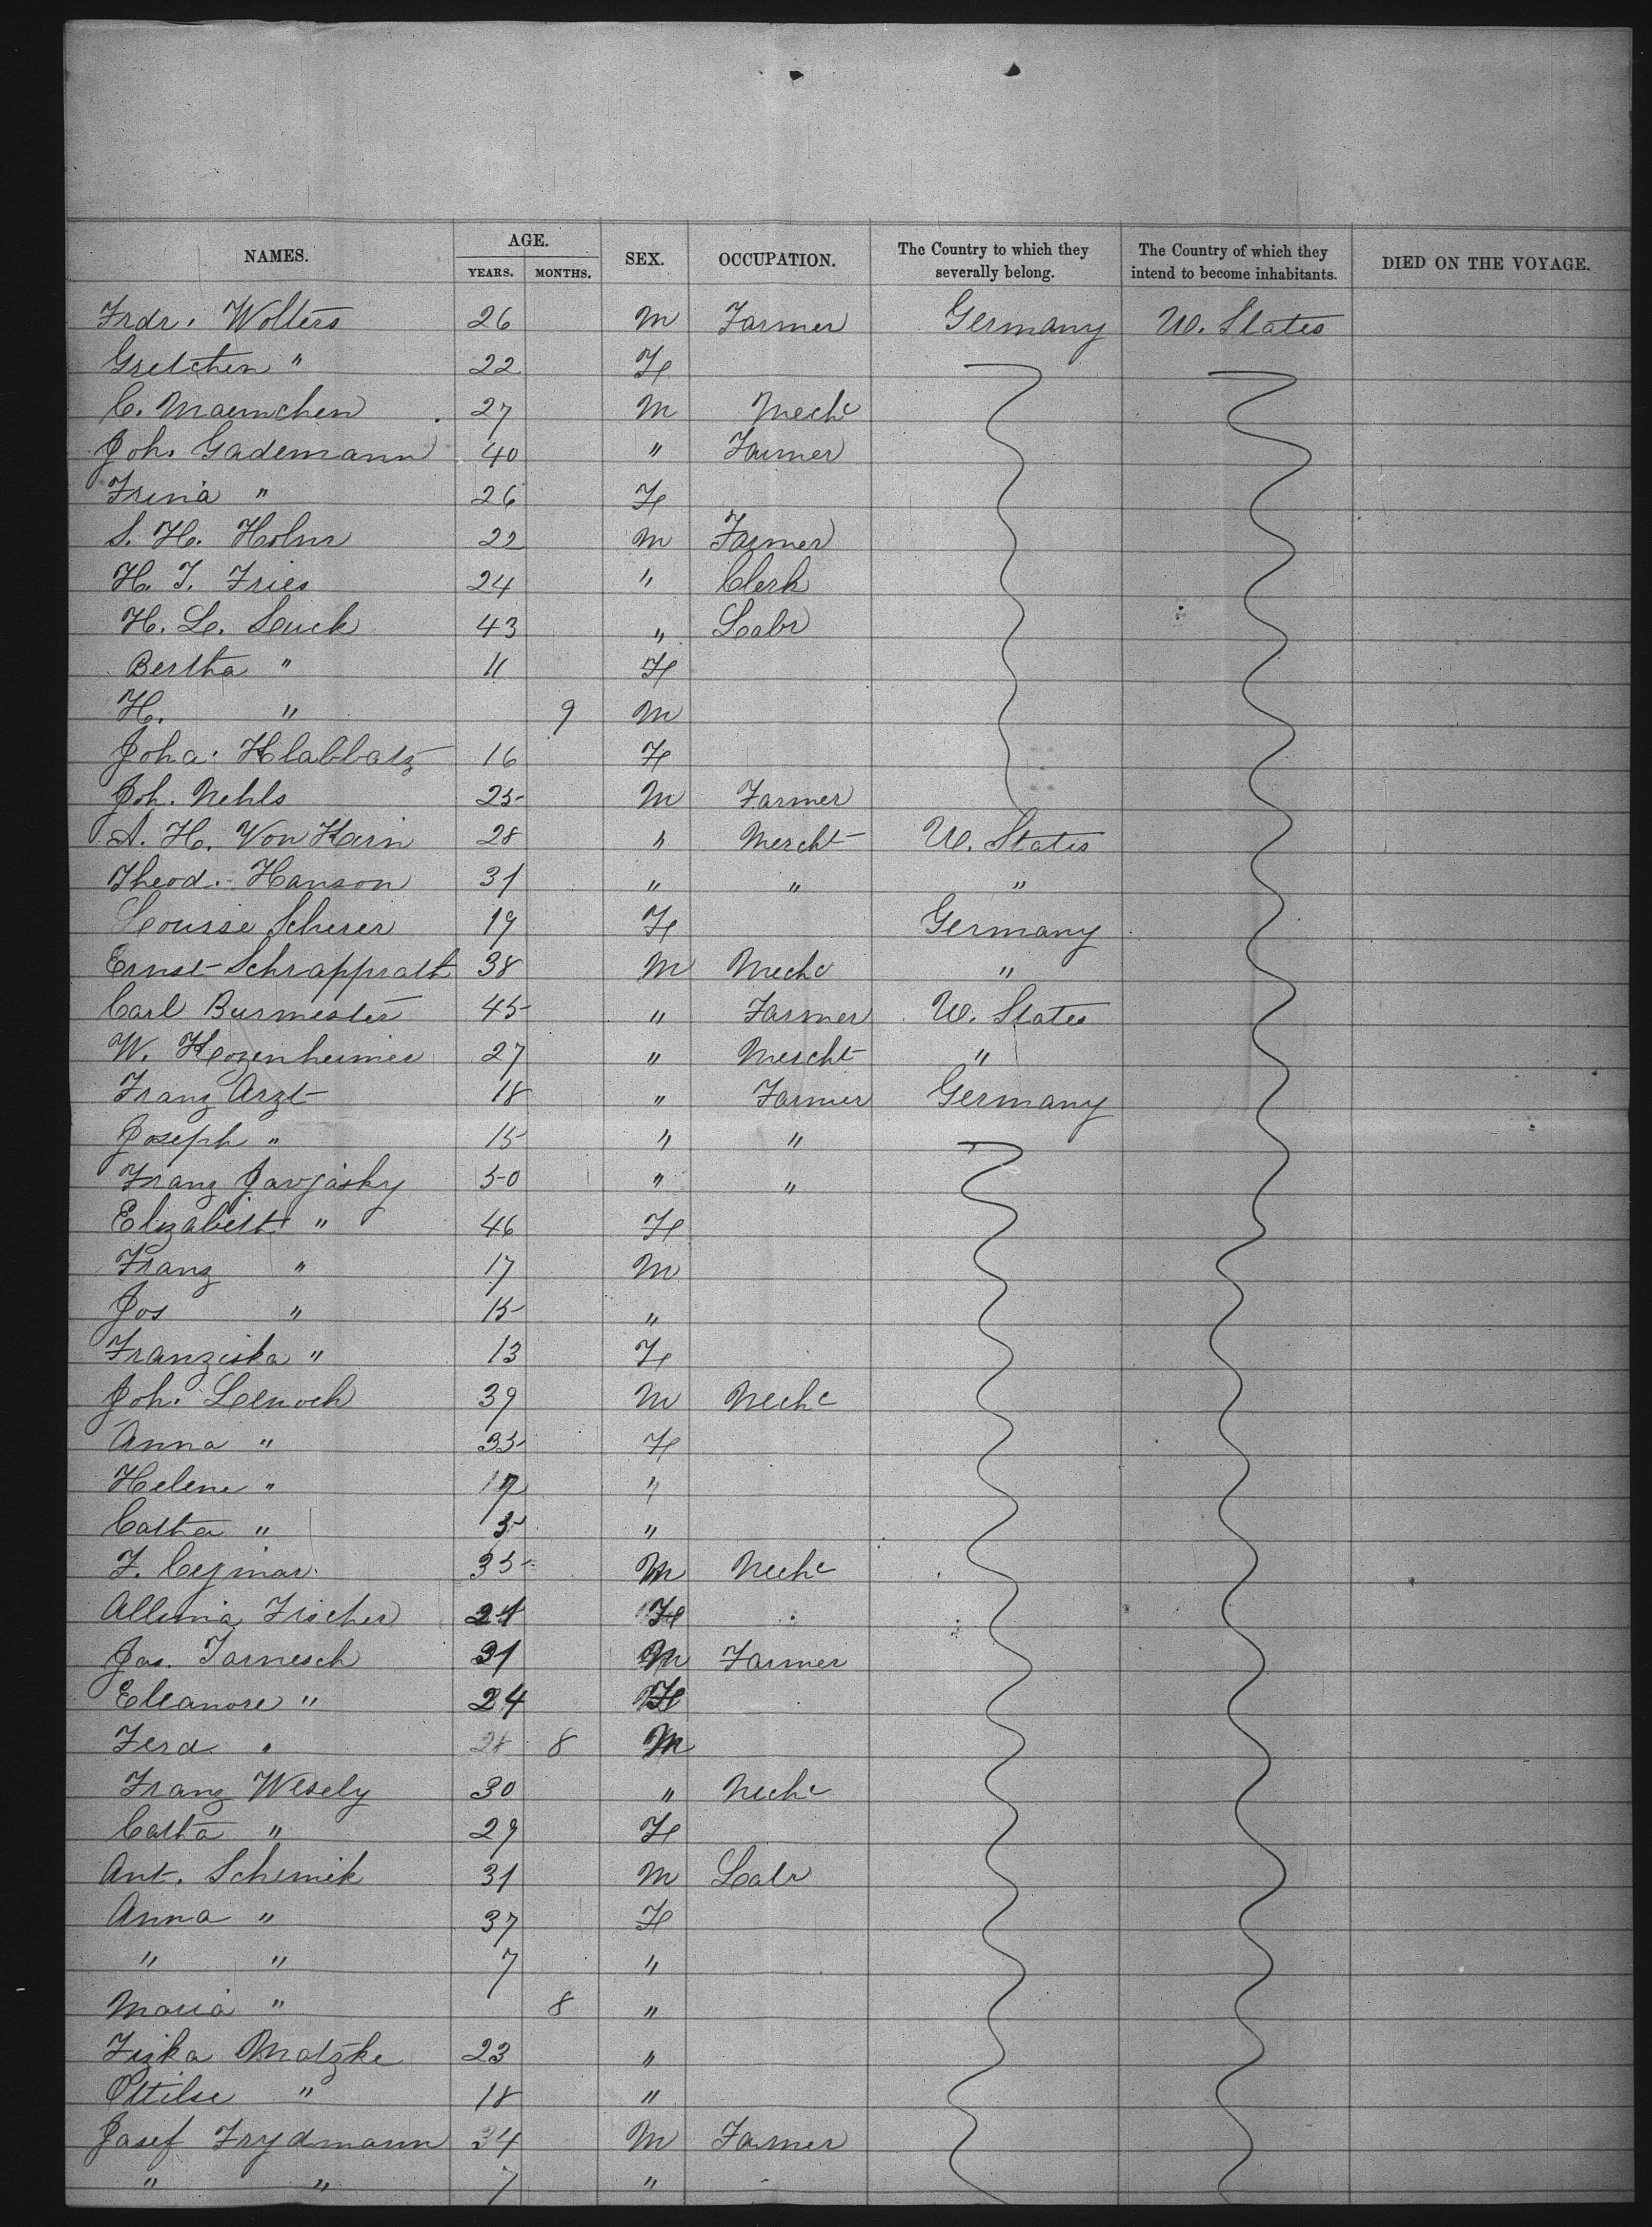 NAMES. AGE. SEX. OCCUPATION. The Country to which they severally belong. The Country of which they intend to become inhabitants. DIED ON THE VOYAGE.
YEARS. MONTHS.
Frdr. Wolters 26 M Farmer Germany U. States
Gretchen " 22 F
C. Maemchen 27 M Mechc
Joh. Gademann 40 " Farmer
Trina " 26 F
S. H. Holm 22 M Farmer
H. T. Fries 24 " Clerk
H. L. Leuck 43 " Labr
Bertha " 11 F
H. " 9 M
Joha. Klabbatz 16 F
Joh. Nehls 25 M Farmer
A. H. Von Kern 28 " Mercht U. States
Theod. Hanson 31 " " "
Louise Scherer 19 F Germany
Ernst Schrappratt 38 M Mechc "
Carl Burmester 45 " Farmer U. States
W. 27 " Mercht "
Franz Arzt 18 " Farmer Germany
Joseph " 15 " "
Franz 50 " "
Elizabeth " 46 F
Franz " 17 M
Jos " 15 "
Franziska " 13 F
Joh. Lenoch 39 M Mechc
Anna " 35 F
Helene " 17 "
Catha " 5 "
F. 35 M Mechc
Fischer 24 F
Jos. Tarnesch 31 M Farmer
Eleanore " 24 F
Ferd " 8 M
Franz Wesely 30 " Mechc
Catha " 29 F
Ant. Schimik 31 M Labr
Anna " 37 F
" " 7 "
Maria " 8 "
Fizka Matzke 23 "
Ottilie " 18 "
Josef Frydmann 34 M Farmer
" " 7 "